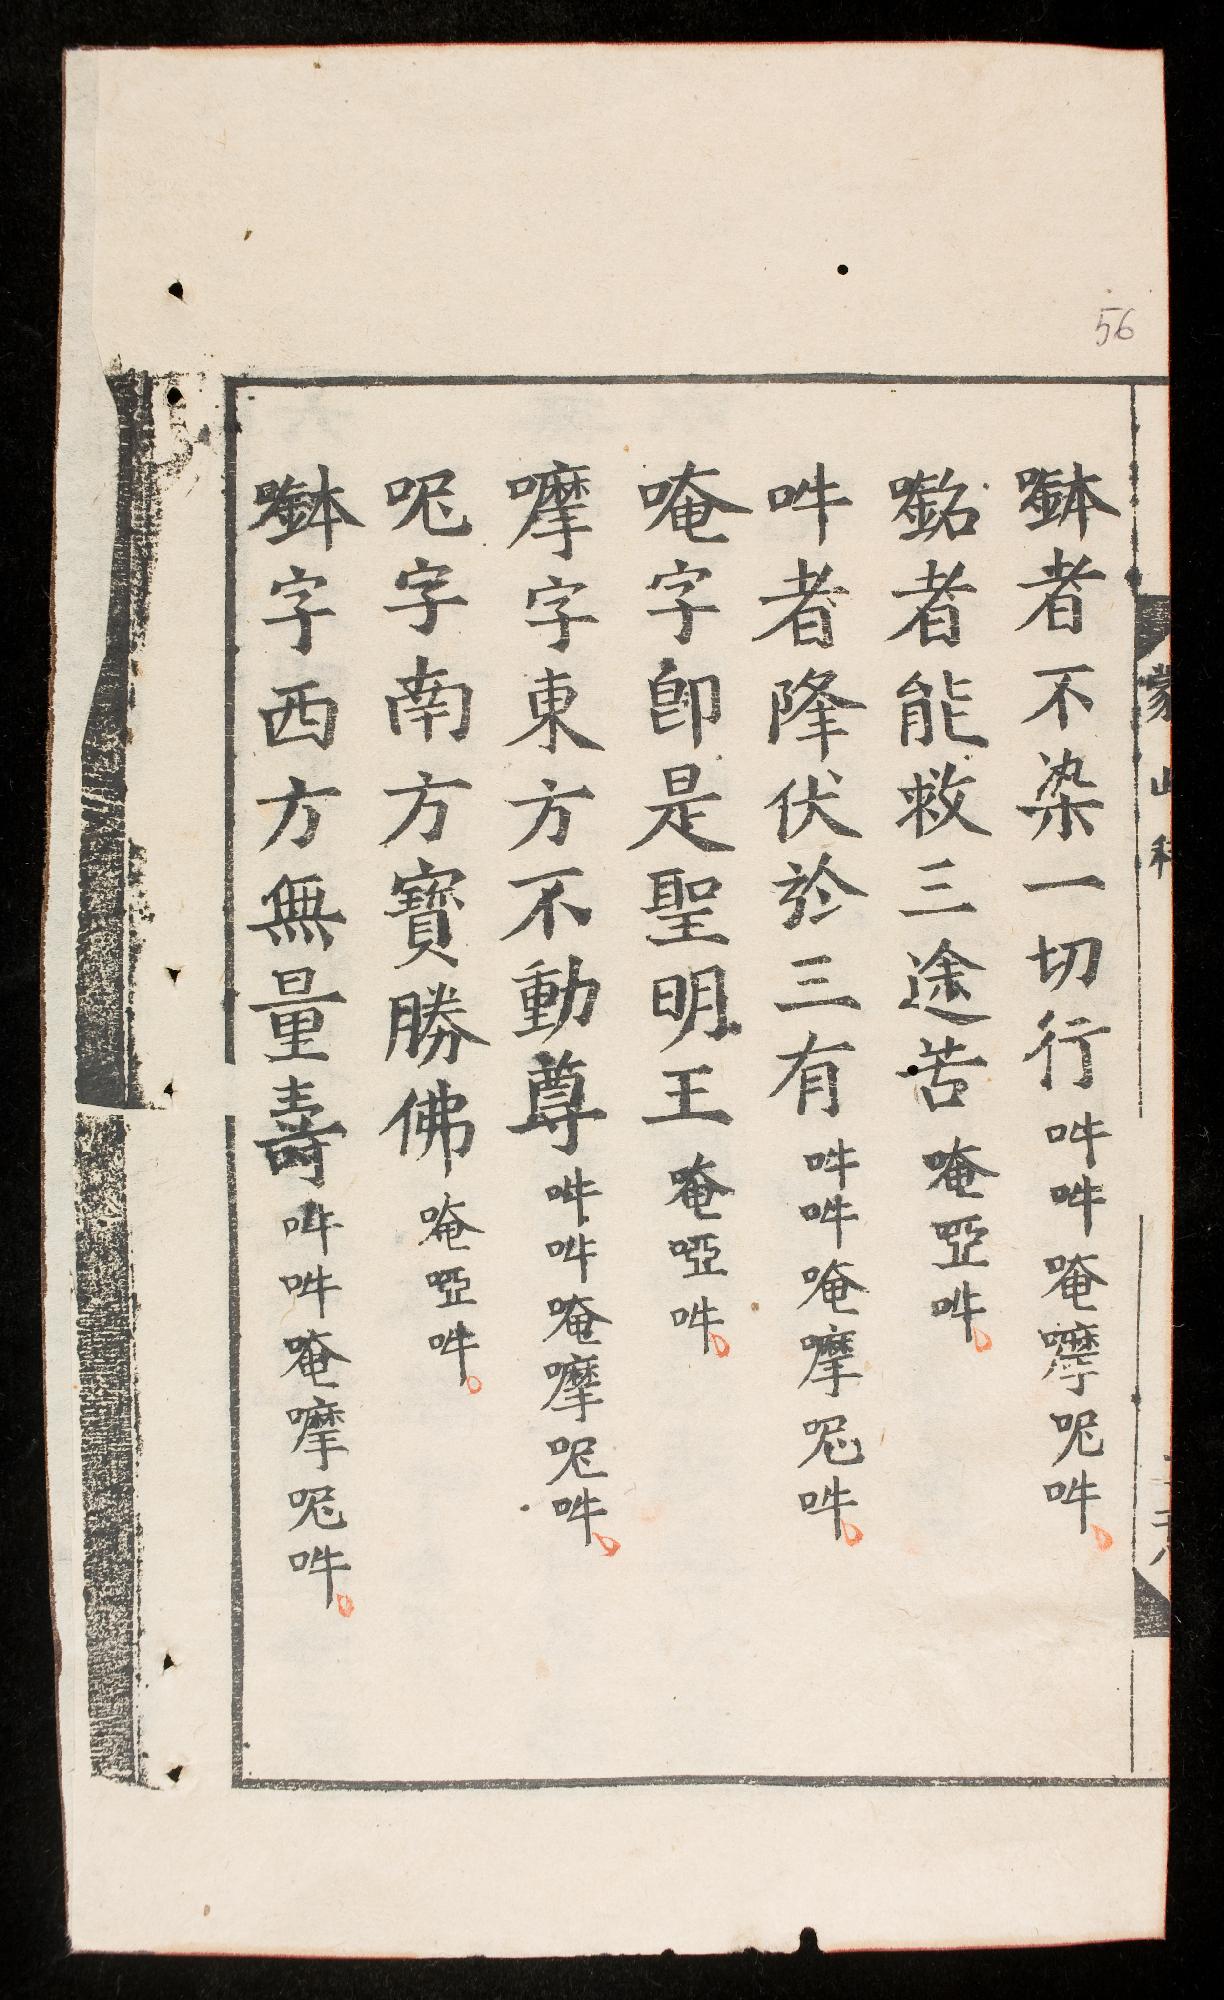 56
𡁠者不染一切行吽吽唵嚤呢吽
㘄者能救三途苦唵啞吽
吽者降伏於三有吽吽唵嚤呢吽
唵字卽是聖明王唵啞吽
嚤字東方不動尊吽吽唵嚤呢吽
呢字南方寶勝佛唵啞吽
𡁠字西方無量壽吽吽唵嚤呢吽
蒙山科